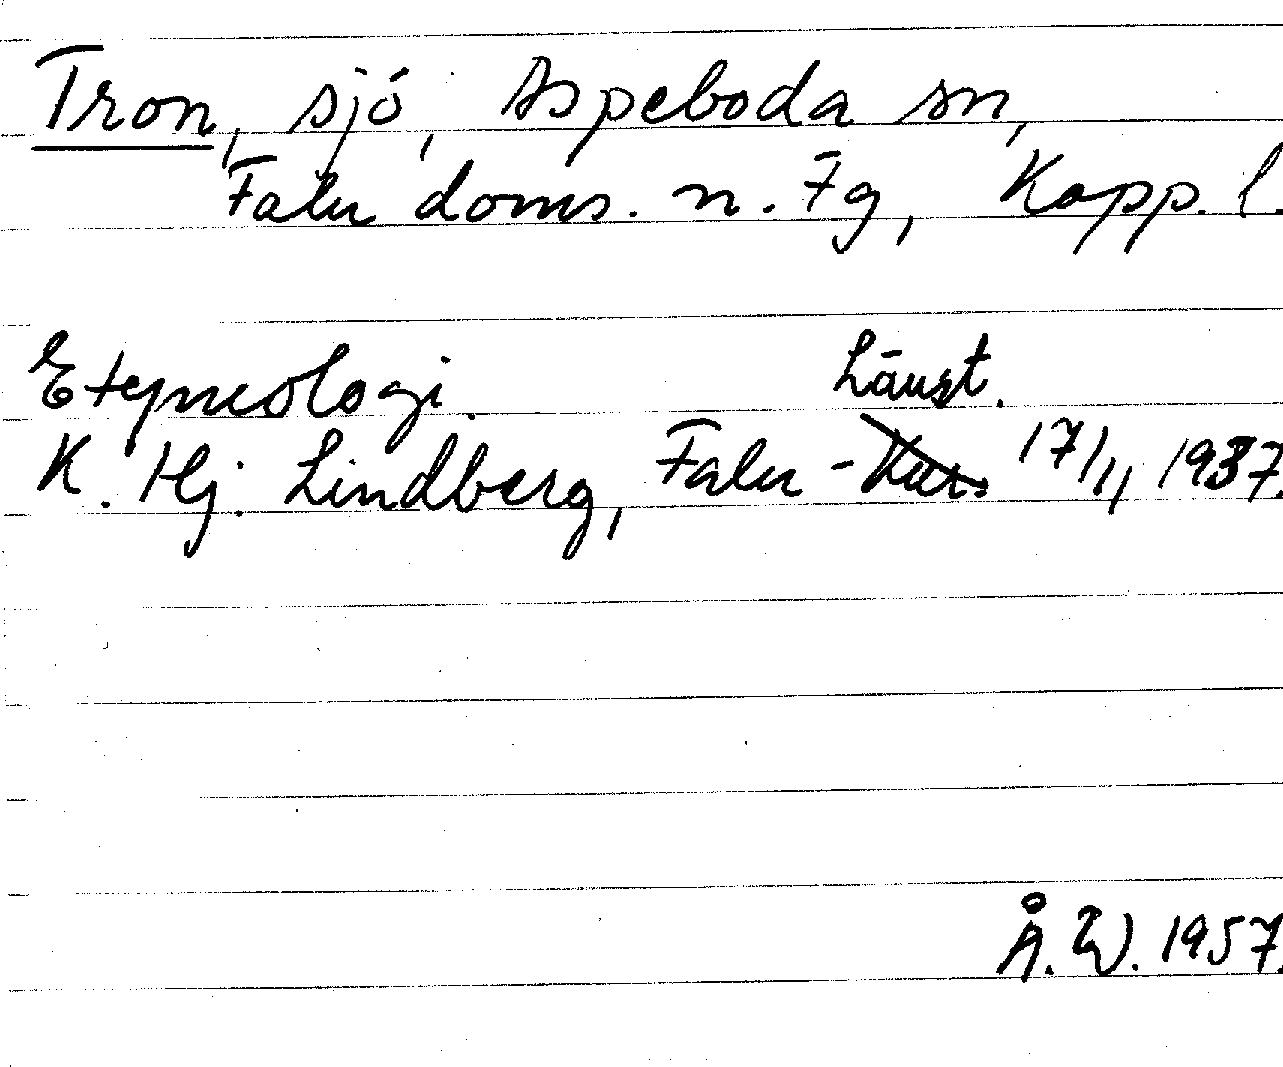 Tron, sjö, Aspeboda sn,
Falu doms. n. Fg, Kopp. l.
Etymologi.
K. Hj. Lindberg, Falu - Kurs Länst. 17/11 1937.
Å. W. 1957.